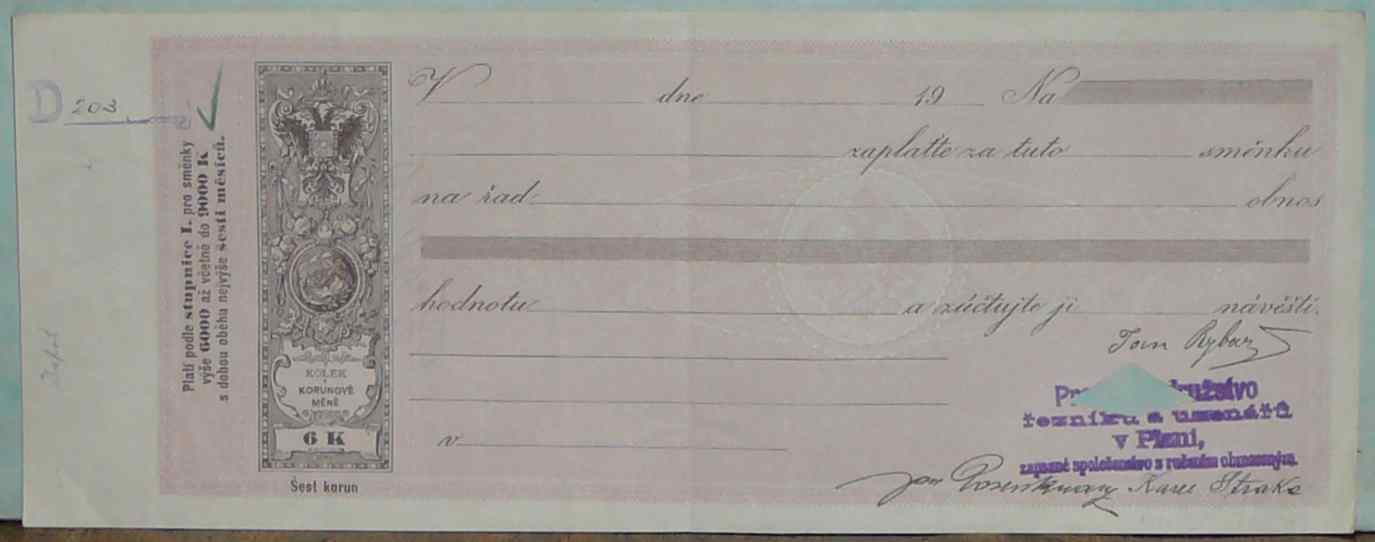 D 203
Platí podle stupnice I. pro směnky
výše 6000 až včetně do 9000 K
s dobou oběhu nejvýše šesti měsíců.
KOLEK
V
KORUNOVÉ
MĚNĚ
6 K
Šest korun
V dne 19 Na
zaplaťte za tuto směnku
na řad: obnos
hodnotu a zúčtujte ji návěští.
v
Jan Rybar
řezníků a uzenářů
v Plzni,
zapsané společenstvo s ručením obmezeným.
Jan Karel Straka